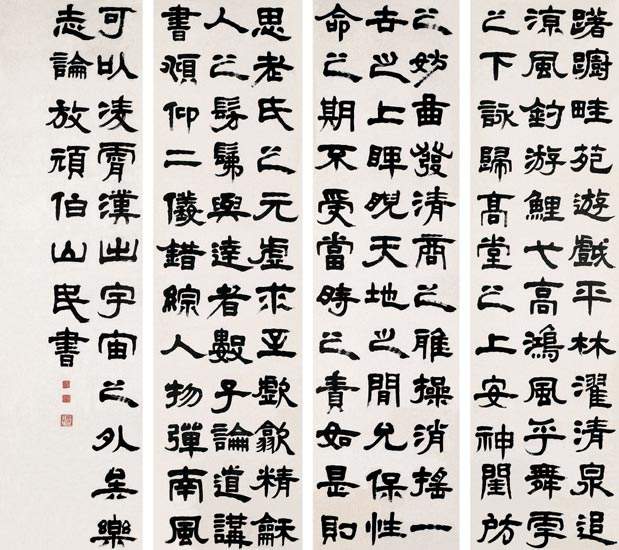 躇躕畦苑遊戲平林濯清泉追
涼風釣游鯉弋高鴻風乎舞雩
之下詠歸高堂之上安神閨房
之妙曲發清商之雅操消搖一
世之上睥睨天地之閒允保性
命之期不受當時之責如是則
思老氏之元虛求至歔歙精龢
人之髣髴與達者數子論道講
書頫仰二儀錯綜人物彈南風
可以凌霄漢出宇宙之外矣樂
志論放頑伯山民書